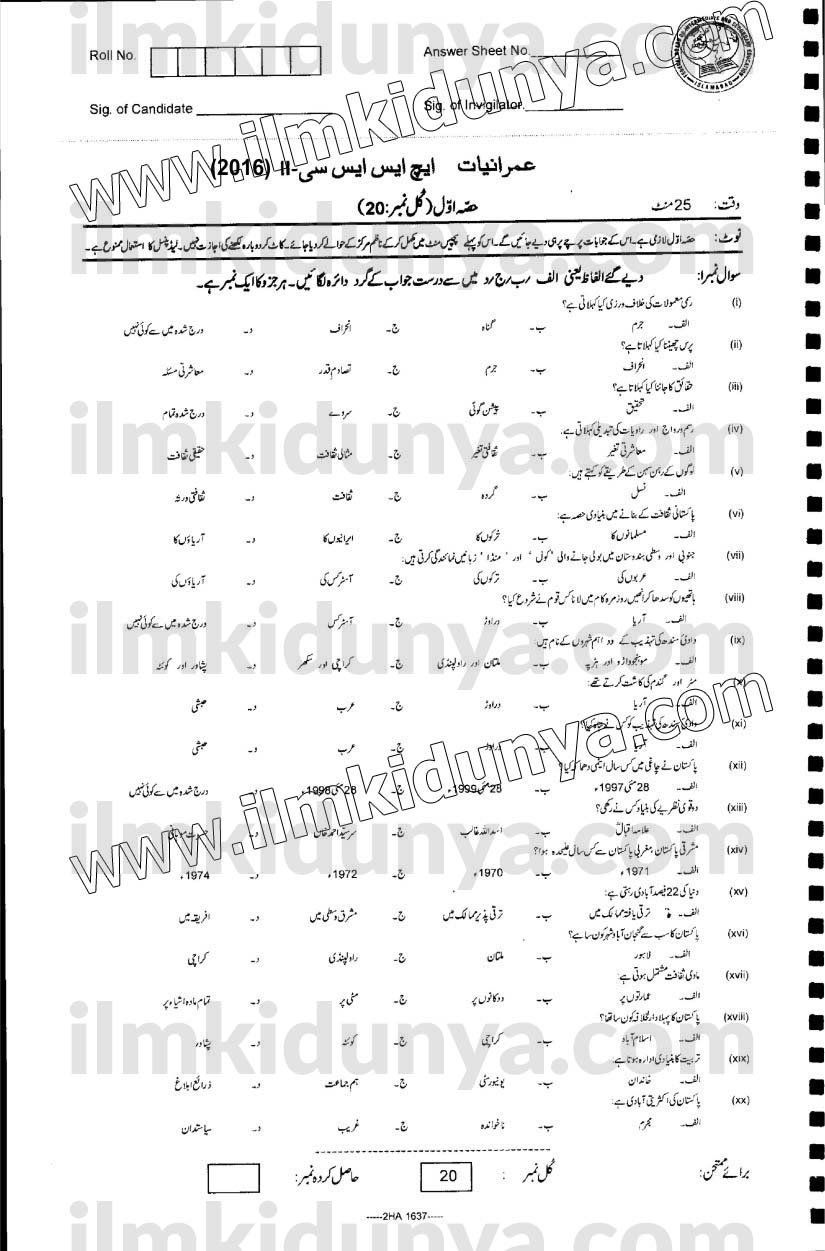 Roll No.
Answer Sheet No.
FEDERAL BOARD OF INTERMEDIATE AND SECONDARY EDUCATION ISLAMABAD
Sig. of Candidate
Sig. of Invigilator.
www.ilmkidunya.com
عمرانیات ایچ ایس ایس سی-II (2016)
وقت: 25 منٹ
حصہ اوّل (کُل نمبر: 20)
نوٹ: حصہ اوّل لازمی ہے۔ اس کے جوابات پرچے پر ہی دیے جائیں گے۔ اس کو پہلے پچیس منٹ میں مکمل کر کے ناظم مرکز کے حوالے کر دیا جائے۔ کاٹ کر دوبارہ لکھنے کی اجازت نہیں۔ لیڈ پنسل کا استعمال ممنوع ہے۔
سوال نمبر۱: دیے گئے الفاظ یعنی الف / ب / ج / د میں سے درست جواب کے گرد دائرہ لگائیں۔ ہر جزو کا ایک نمبر ہے۔
(i) رسمی معمولات کی خلاف ورزی کیا کہلاتی ہے؟
الف۔ جرم ب۔ گناہ ج۔ انحراف د۔ درج شدہ میں سے کوئی نہیں
(ii) پرس چھیننا کیا کہلاتا ہے؟
الف۔ انحراف ب۔ جرم ج۔ تصادم قدر د۔ معاشرتی مسئلہ
(iii) حقائق کا جاننا کیا کہلاتا ہے؟
الف۔ تحقیق ب۔ پیشن گوئی ج۔ سروے د۔ درج شدہ تمام
(iv) رسم و رواج اور روایات کی تبدیلی کہلاتی ہے۔
الف۔ معاشرتی تغیر ب۔ ثقافتی تغیر ج۔ مثالی ثقافت د۔ حقیقی ثقافت
(v) لوگوں کے رہن سہن کے طریقے کو کہتے ہیں:
الف۔ نسل ب۔ گروہ ج۔ ثقافت د۔ ثقافتی ورثہ
(vi) پاکستانی ثقافت کے بنانے میں بنیادی حصہ ہے:
الف۔ مسلمانوں کا ب۔ ترکوں کا ج۔ ایرانیوں کا د۔ آریاؤں کا
(vii) جنوبی اور وسطی ہندوستان میں بولی جانے والی 'کول' اور 'منڈا' زبانیں نمائندگی کرتی ہیں:
الف۔ عربوں کی ب۔ ترکوں کی ج۔ آسٹرکس کی د۔ آریاؤں کی
(viii) ہاتھیوں کو سدھا کر انھیں روزمرہ کام میں لانا کس قوم نے شروع کیا؟
الف۔ آریا ب۔ دراوڑ ج۔ آسٹرکس د۔ درج شدہ میں سے کوئی نہیں
(ix) وادئ سندھ کی تہذیب کے دو اہم شہروں کے نام ہیں:
الف۔ موہنجوداڑو اور ہڑپہ ب۔ ملتان اور راولپنڈی ج۔ کراچی اور سکھر د۔ پشاور اور کوئٹہ
(x) مٹر اور گندم کی کاشت کرتے تھے:
الف۔ آریا ب۔ دراوڑ ج۔ عرب د۔ حبشی
(xi) وادئ سندھ کی تہذیب کو کس نے تباہ کیا؟
الف۔ آریا ب۔ دراوڑ ج۔ عرب د۔ حبشی
(xii) پاکستان نے چاغی میں کس سال ایٹمی دھماکہ کیا؟
الف۔ 28 مئی 1997ء ب۔ 28 مئی 1999ء ج۔ 28 مئی 1998ء د۔ درج شدہ میں سے کوئی نہیں
(xiii) دو قومی نظریے کی بنیاد کس نے رکھی؟
الف۔ علامہ اقبالؒ ب۔ اسد اللہ غالب ج۔ سر سید احمد خان د۔ حسرت موہانی
(xiv) مشرقی پاکستان مغربی پاکستان سے کس سال علیحدہ ہوا؟
الف۔ 1971ء ب۔ 1970ء ج۔ 1972ء د۔ 1974ء
(xv) دنیا کی 22 فیصد آبادی رہتی ہے:
الف۔ ترقی یافتہ ممالک میں ب۔ ترقی پذیر ممالک میں ج۔ مشرق وسطی میں د۔ افریقہ میں
(xvi) پاکستان کا سب سے گنجان آباد شہر کون سا ہے؟
الف۔ لاہور ب۔ ملتان ج۔ راولپنڈی د۔ کراچی
(xvii) مادی ثقافت مشتمل ہوتی ہے:
الف۔ عمارتوں پر ب۔ دوکانوں پر ج۔ مٹی پر د۔ تمام مادہ اشیاء پر
(xviii) پاکستان کا پہلا دارالخلافہ کون سا تھا؟
الف۔ اسلام آباد ب۔ کراچی ج۔ کوئٹہ د۔ پشاور
(xix) تربیت کا بنیادی ادارہ ہوتا ہے:
الف۔ خاندان ب۔ یونیورسٹی ج۔ ہم جماعت د۔ ذرائع ابلاغ
(xx) پاکستان کی اکثریتی آبادی ہے:
الف۔ مجرم ب۔ ناخواندہ ج۔ غریب د۔ سیاستدان
برائے ممتحن: کُل نمبر: 20 حاصل کردہ نمبر:
-----2HA 1637-----
ilmkidunya.com